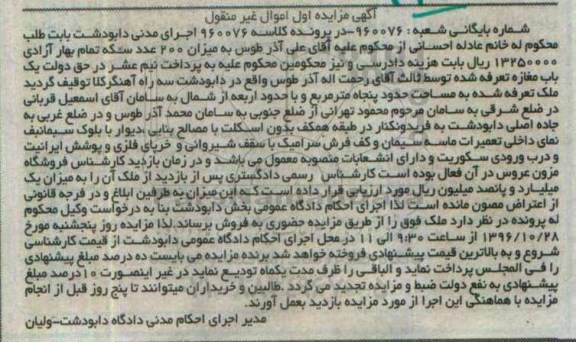 آگهی مزایده اول اموال غیر منقول
شماره بایگانی شعبه : ۹۶۰۰۷۶-در پرونده کلاسه ۹۶۰۰۷۶ اجرای مدنی دابودشت بابت طلب
محکوم له خانم عادله احسانی از محکوم علیه آقای علی آذر طوس به میزان ۲۰۰ عدد سکه تمام بهار آزادی
۱۳۲۵۰۰۰۰ ریال بابت هزینه دادرسی و نیز محکومین محکوم علیه به پرداخت نیم عشر در حق دولت یک
باب مغازه تعرفه شده توسط ثالث آقای رحمت اله آذر طوس واقع در دابودشت سه راه آهنگرکلا توقیف گردید
ملک تعرفه شده به مساحت حدود پنجاه مترمربع و با حدود اربعه از شمال به سامان آقای اسمعیل قربانی
در ضلع شرقی به سامان مرحوم محمود تهرانی از ضلع جنوبی به سامان محمد آذر طوس و در ضلع غربی به
جاده اصلی دابودشت به فریدونکنار در طبقه همکف بدون اسکلت با مصالح بنایی ،دیوار با بلوک سیمانی
نمای داخلی تعمیرات ماسه سیمان و کف فرش سرامیک با سقف شیروانی و خرپای فلزی و پوشش ایرانیت
و درب ورودی سکوریت و دارای انشعابات منصوبه معمول می باشد و در زمان بازدید کارشناس فروشگاه
مزون عروس در آن فعال بوده است کارشناس رسمی دادگستری پس از بازدید از ملک آن را به میزان یک
میلیارد و پانصد میلیون ریال مورد ارزیابی قرار داده است که این میزان به طرفین ابلاغ و در فرجه قانونی
از اعتراض مصون مانده است لذا اجرای احکام دادگاه عمومی بخش دابودشت بنا به درخواست وکیل محکوم
له پرونده در نظر دارد ملک فوق را از طریق مزایده حضوری به فروش برساند.لذا مزایده روز پنجشنبه مورخ
۱۳۹۶/۱۰/۲۸ از ساعت ۹:۳۰ الی ۱۱ در محل اجرای احکام دادگاه عمومی دابودشت از قیمت کارشناسی
شروع و به بالاترین قیمت پیشنهادی فروخته خواهد شد برنده مزایده می بایست ده درصد مبلغ پیشنهادی
را فی المجلس پرداخت نماید و الباقی را ظرف مدت یکماه تودیع نماید در غیر اینصورت ۱۰ درصد مبلغ
پیشنهادی به نفع دولت ضبط و مزایده تجدید می گردد .طالبین و خریداران میتوانند تا پنج روز قبل از انجام
مزایده با هماهنگی این اجرا از مورد مزایده بازدید بعمل آورند.
مدیر اجرای احکام مدنی دادگاه دابودشت-ولیان